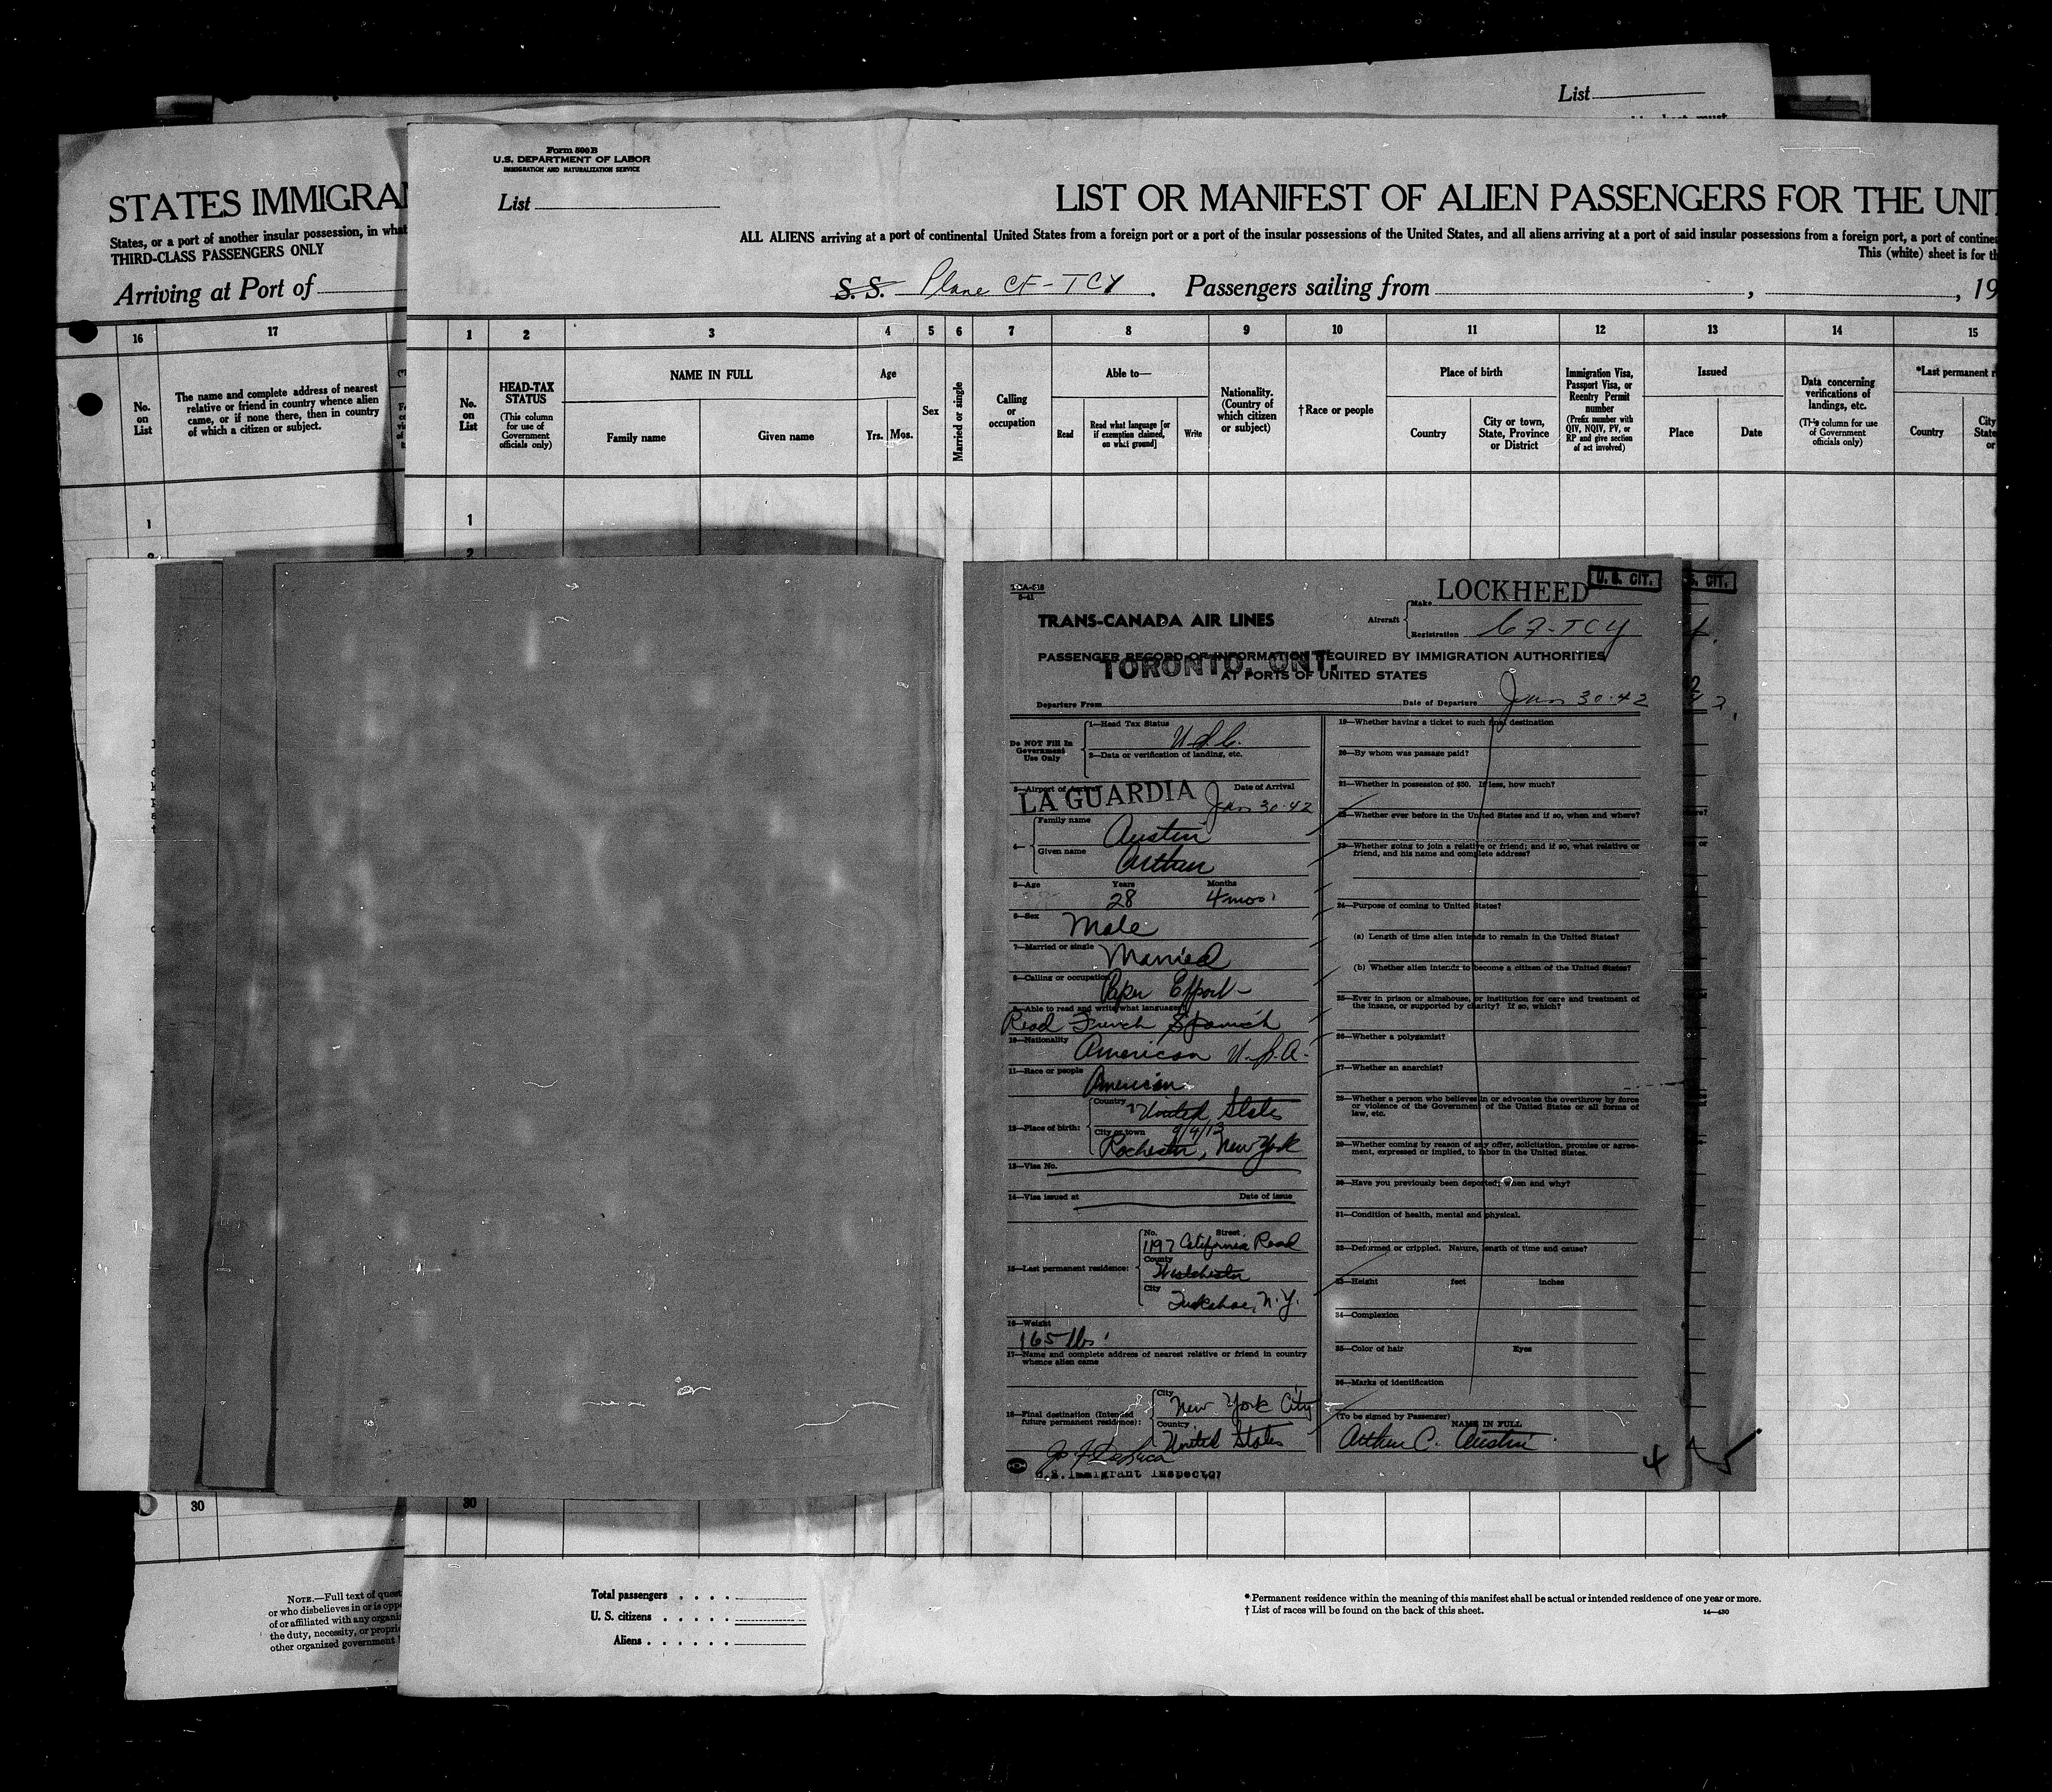 List
Form 500B
U.S. DEPARTMENT OF LABOR
IMMIGRATION AND NATURALIZATION SERVICE
List
STATES IMMIGRA
States, or a port of another insular possession, in what
THIRD-CLASS PASSENGERS ONLY
Arriving at Port of
LIST OR MANIFEST OF ALIEN PASSENGERS FOR THE UNIT
ALL ALIENS arriving at a port of continental United States from a foreign port or a port of the insular possessions of the United States, and all aliens arriving at a port of said insular possessions from a foreign port, a port of contine
This (white) sheet is for th
S. S. Plane CF-TCY. Passengers sailing from , , 19
16 17
No. on List
The name and complete address of nearest
relative or friend in country whence alien
came, or if none there, then in country
of which a citizen or subject.
1 2 3 4 5 6 7 8 9 10 11 12 13 14 15
No. on List
HEAD-TAX STATUS
(This column for use of Government officials only)
NAME IN FULL
Family name Given name
Age
Yrs. Mos.
Sex
Married or single
Calling or occupation
Able to—
Read
Read what language [or if exemption claimed, on what ground]
Write
Nationality. (Country of which citizen or subject)
†Race or people
Place of birth
Country
City or town, State, Province or District
Immigration Visa, Passport Visa, or Reentry Permit number
(Prefix number with QIV, NQIV, PV, or RP and give section of act involved)
Issued
Place Date
Data concerning verifications of landings, etc.
(This column for use of Government officials only)
*Last permanent r
Country
City
State
or
1
1
2
LOCKHEED
U. S. CIT.
S. CIT.
TRANS-CANADA AIR LINES
Aircraft
Make
Registration CF-TCY
PASSENGER RECORD OF INFORMATION REQUIRED BY IMMIGRATION AUTHORITIES
AT PORTS OF UNITED STATES
TORONTO, ONT.
Departure From
Date of Departure Jan 30-42
Do NOT Fill In
Government
Use Only
1—Head Tax Status
U.S.C.
2—Data or verification of landing, etc.
3—Airport of Arrival
Date of Arrival
LA GUARDIA Jan 30-42
4—
Family name Austin
Given name Arthur
5—Age Years Months
28 4 mos.
6—Sex Male
7—Married or single Married
8—Calling or occupation Paper Export-
9—Able to read and write what language
Read French Spanish
10—Nationality American U.S.A.
11—Race or people American
12—Place of birth:
Country United States
City or town 9/4/13
Rochester, New York
13—Visa No.
14—Visa issued at Date of issue
15—Last permanent residence:
No. Street
1197 California Road
County Westchester
City Tuckahoe, N.Y.
16—Weight
165 lbs.
17—Name and complete address of nearest relative or friend in country
whence alien came
18—Final destination (Intended
future permanent residence):
City New York City
Country United States
U.S. Immigrant Inspector
19—Whether having a ticket to such final destination
20—By whom was passage paid?
21—Whether in possession of $50. If less, how much?
22—Whether ever before in the United States and if so, when and where?
23—Whether going to join a relative or friend; and if so, what relative or
friend, and his name and complete address?
24—Purpose of coming to United States?
(a) Length of time alien intends to remain in the United States?
(b) Whether alien intends to become a citizen of the United States?
25—Ever in prison or almshouse, or institution for care and treatment of
the insane, or supported by charity? If so, which?
26—Whether a polygamist?
27—Whether an anarchist?
28—Whether a person who believes in or advocates the overthrow by force
or violence of the Government of the United States or all forms of
law, etc.
29—Whether coming by reason of any offer, solicitation, promise or agree-
ment, expressed or implied, to labor in the United States.
30—Have you previously been deported; when and why?
31—Condition of health, mental and physical.
32—Deformed or crippled. Nature, length of time and cause?
33—Height feet inches
34—Complexion
35—Color of hair Eyes
36—Marks of identification
(To be signed by Passenger)
NAME IN FULL
Arthur C. Austin
4 5
30
30
NOTE.—Full text of quest
or who disbelieves in or is oppo
of or affiliated with any organi
the duty, necessity, or proprie
other organized government
Total passengers . . . .
U. S. citizens . . . . .
Aliens . . . . . .
* Permanent residence within the meaning of this manifest shall be actual or intended residence of one year or more.
† List of races will be found on the back of this sheet.
14—430